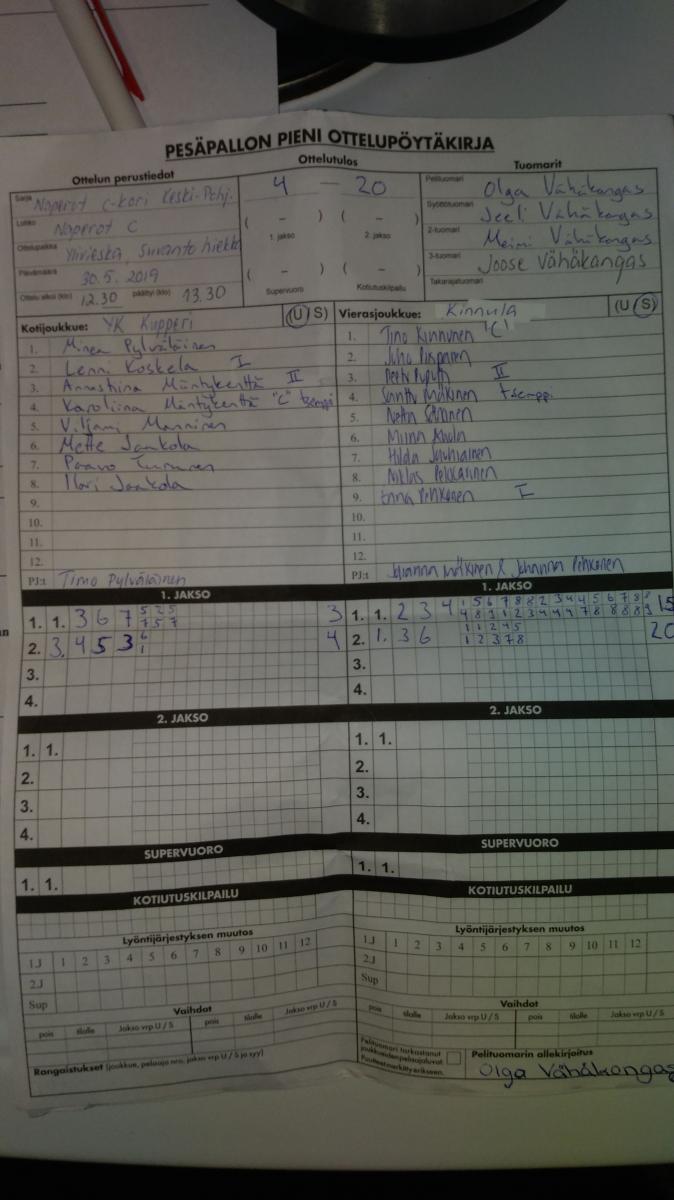 PESÄPALLON PIENI OTTELUPÖYTÄKIRJA
Ottelun perustiedot
Ottelutulos
Tuomarit
Sarja Naperot C-kori Keski-Pohj.
Lohko Naperot C
Ottelupaikka Ylivieska, Suvanto hiekka
Päivämäärä 30.5. 2019
Ottelu alkoi (klo) 12.30 päättyi (klo) 13.30
4 — 20
( – ) ( – )
1. jakso 2. jakso
( – ) ( –
Supervuoro Kotiutuskilpailu
Pelituomari Olga Vähäkangas
Syöttötuomari Jeeli Vähäkangas
2-tuomari Meimi Vähäkangas
3-tuomari Joose Vähäkangas
Takarajatuomari
Kotijoukkue: YK Kupperi (U/S)
1. Minea Pylväläinen
2. Lenni Koskela I
3. Annastiina Mäntykenttä II
4. Karoliina Mäntykenttä "C" tsemppi
5. Viljami Manninen
6. Mette Jaakola
7. Paavo
8. Ilari Jaakola
9.
10.
11.
12.
PJ:t Timo Pylväläinen
Vierasjoukkue: Kinnula (U/S)
1. Timo Kinnunen "C"
2. Juho Piispanen
3. II
4. Santtu Mäkinen tsemppi
5.
6.
7. Hilda Jauhiainen
8. Niklas Pekkarinen
9. Enna Pehkonen I
10.
11.
12.
PJ:t Johanna Mäkinen & Johanna Pehkonen
1. JAKSO
1. 1. 3 6 7 5 2 5 3
7 5 7
2. 3. 4 5 3 6 4
1
3.
4.
1. JAKSO
1. 1. 2 3 4 15
2. 1. 3 6 1 1 2 4 5 20
1 2 3 7 8
3.
4.
2. JAKSO
1. 1.
2.
3.
4.
2. JAKSO
1. 1.
2.
3.
4.
SUPERVUORO
1. 1.
SUPERVUORO
1. 1.
KOTIUTUSKILPAILU
KOTIUTUSKILPAILU
Lyöntijärjestyksen muutos
1.J 1 2 3 4 5 6 7 8 9 10 11 12
2.J
Sup
Lyöntijärjestyksen muutos
1.J 1 2 3 4 5 6 7 8 9 10 11 12
2.J
Sup
Vaihdot
pois tilalle Jakso vrp U / S pois tilalle Jakso vrp U / S
Vaihdot
pois tilalle Jakso vrp U / S pois tilalle Jakso vrp U / S
Rangaistukset (joukkue, pelaaja nro, jakso vrp U / S ja syy)
Pelituomari tarkastanut
joukkueiden pelaajaluvat.
Puutteet merkitty erikseen.
Pelituomarin allekirjoitus
Olga Vähäkangas